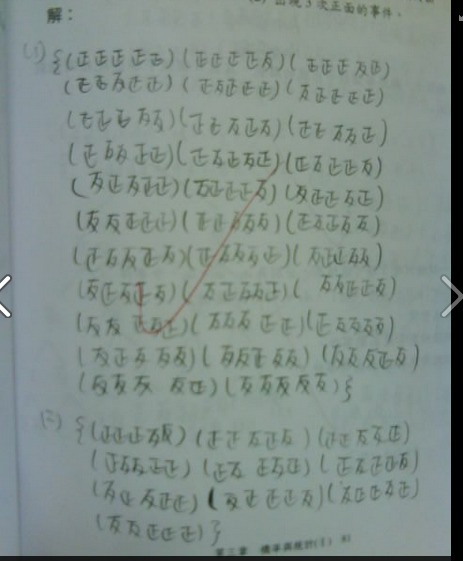 出現3次正面的事件。
解：
(1) {(正正正正正)(正正正正反)(正正正反正)
(正正反正正)(正反正正正)(反正正正正)
(正正正反反)(正正反正反)(正正反反正)
(正反反正正)(正反正反正)(正反正正反)
(反正反正正)(反正正正反)(反正正反正)
(反反正正正)(正正反反反)(正反正反反)
(正反反正反)(正反反反正)(反正正反反)
(反正反正反)(反正反反正)(反反正正反)
(反反正反正)(反反反正正)(正反反反反)
(反正反反反)(反反正反反)(反反反正反)
(反反反反正)(反反反反反)}
(2) {(正正正反反)(正正反正反)(正正反反正)
(正反反正正)(正反正反正)(正反正正反)
(反正反正正)(反正正正反)(反正正反正)
(反反正正正)}
第三章 機率與統計(I)